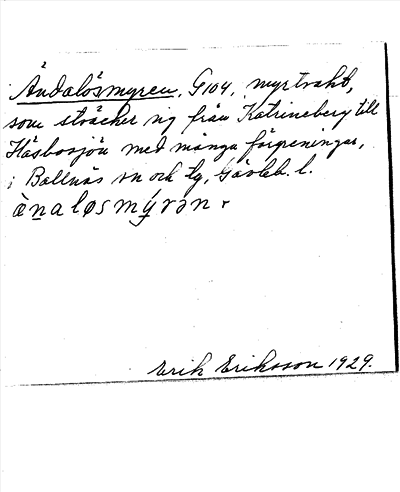 Ändalösmyren, G104, myrtrakt,
som sträcker sig från Katrineberg till
Häsbosjön med många förgreningar,
i Bollnäs sn och tg, Gävleb. l.
ὰn̲aløsmy̆rən.
Erik Eriksson 1929.